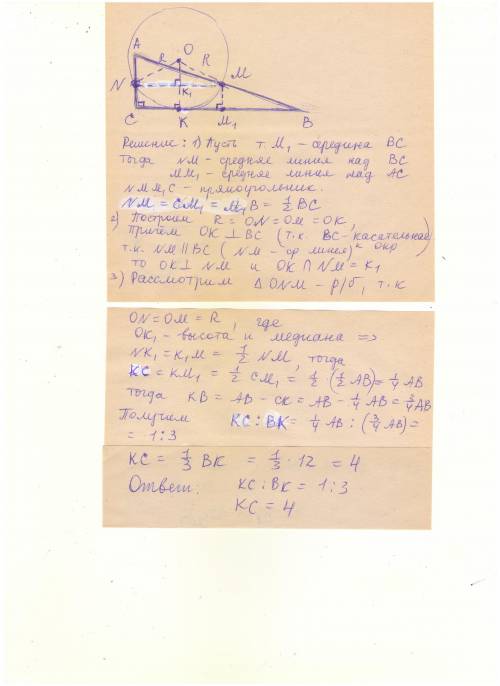 A
O
R
R
N
M
K₁
C
K
M₁
B
Решение: 1) Пусть т. M₁ - середина BC
Тогда NM - средняя линия над BC
MM₁ - средняя линия над AC
NMM₁C - прямоугольник.
NM = CM₁ = M₁B = 1/2 BC
2) Построим R = ON = OM = OK,
Причем OK ⊥ BC (т.к. BC - касательная к окр)
т.к. NM ∥ BC (NM - ср линия)
то OK ⊥ NM и OK ∩ NM = K₁
3) Рассмотрим Δ ONM - р/б, т.к
ON = OM = R, где
OK₁ - высота и медиана =>
NK₁ = K₁M = 1/2 NM, тогда
KC = KM₁ = 1/2 CM₁ = 1/2 (1/2 AB) = 1/4 AB
тогда KB = AB - CK = AB - 1/4 AB = 3/4 AB
Получим KC : BK = 1/4 AB : (3/4 AB) =
= 1:3
KC = 1/3 BK = 1/3 · 12 = 4
Ответ: KC : BK = 1:3
KC = 4